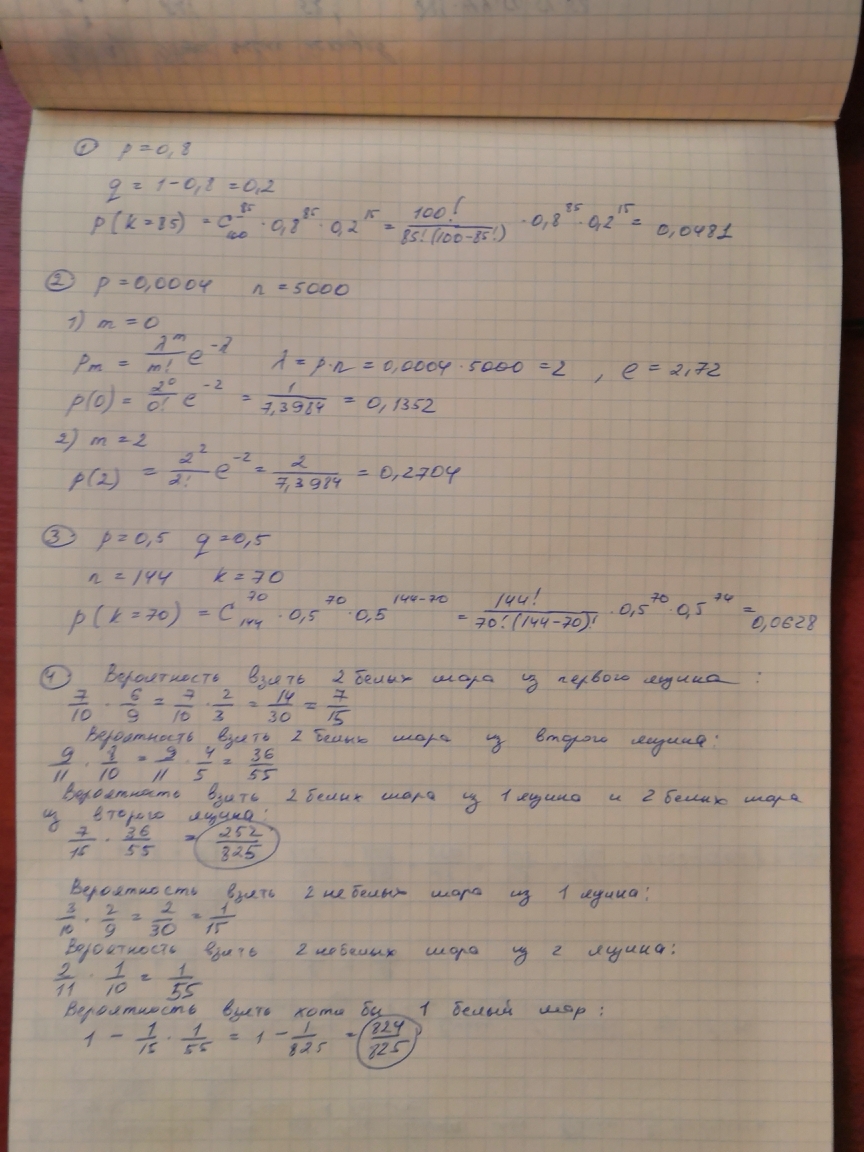 ① p = 0,8
q = 1 - 0,8 = 0,2
P(K=85) = C₁₀₀⁸⁵ · 0,8⁸⁵ · 0,2¹⁵ = 100! / 85!(100-85!) · 0,8⁸⁵ · 0,2¹⁵ = 0,0481
② p = 0,0004 n = 5000
1) m = 0
Pm = λᵐ/m! e^-λ λ = p·n = 0,0004 · 5000 = 2 , e = 2,72
p(0) = 2⁰/0! e⁻² = 1/7,3984 = 0,1352
2) m = 2
p(2) = 2²/2! e⁻² = 2/7,3984 = 0,2704
③ p = 0,5 q = 0,5
n = 144 k = 70
p(k=70) = C₁₄₄⁷⁰ · 0,5⁷⁰ · 0,5¹⁴⁴⁻⁷⁰ = 144!/70!(144-70)! · 0,5⁷⁰ · 0,5⁷⁴ = 0,0628
④ Вероятность взять 2 белых шара из первого ящика :
7/10 · 6/9 = 7/10 · 2/3 = 14/30 = 7/15
Вероятность взять 2 белых шара из второго ящика:
9/11 · 8/10 = 9/11 · 4/5 = 36/55
Вероятность взять 2 белых шара из 1 ящика и 2 белых шара
из второго ящика:
7/15 · 36/55 = 252/825
Вероятность взять 2 небелых шара из 1 ящика:
3/10 · 2/9 = 2/30 = 1/15
Вероятность взять 2 небелых шара из 2 ящика:
2/11 · 1/10 = 1/55
Вероятность взять хотя бы 1 белый шар :
1 - 1/15 · 1/55 = 1 - 1/825 = 824/825